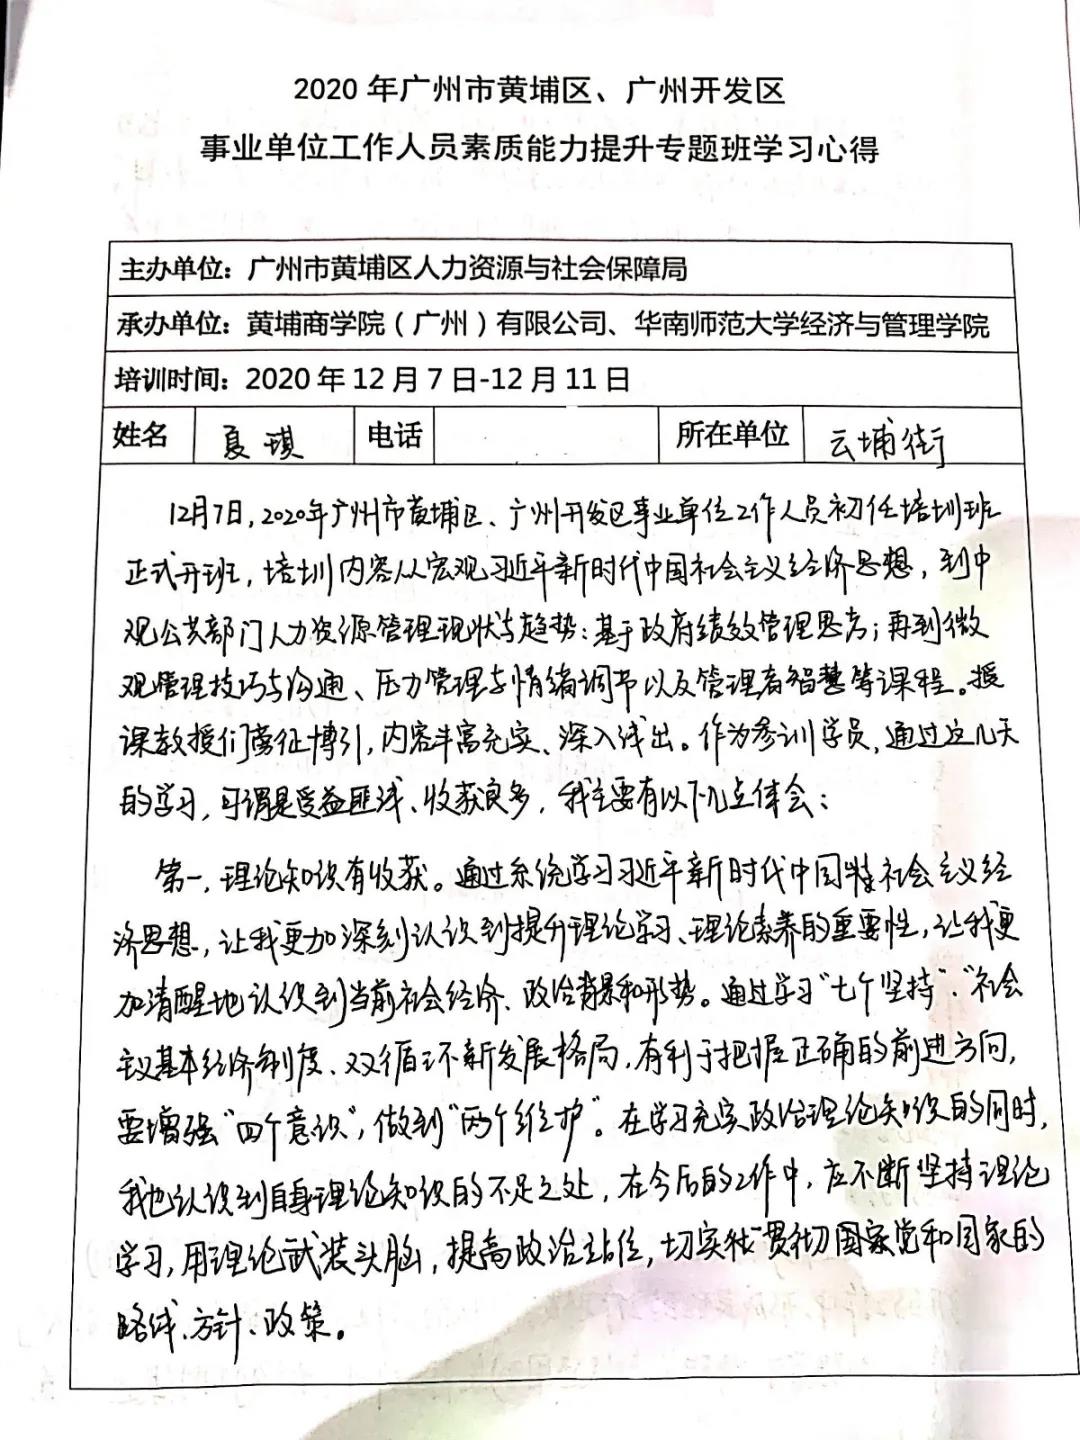 2020 年广州市黄埔区、广州开发区
事业单位工作人员素质能力提升专题班学习心得
主办单位：广州市黄埔区人力资源与社会保障局
承办单位：黄埔商学院（广州）有限公司、华南师范大学经济与管理学院
培训时间：2020 年 12 月 7 日-12 月 11 日
姓名 夏琪 电话 所在单位 云埔街
12月7日，2020年广州市黄埔区、广州开发区事业单位工作人员初任培训班
正式开班，培训内容从宏观习近平新时代中国社会主义经济思想，到中
观公共部门人力资源管理现状与趋势：基于政府绩效管理思考；再到微
观管理技巧与沟通、压力管理与情绪调节以及管理者智慧等课程。授
课教授们旁征博引，内容丰富充实、深入浅出。作为参训学员，通过这几天
的学习，可谓是受益匪浅、收获良多，我主要有以下几点体会：
第一，理论知识有收获。通过系统学习习近平新时代中国特社会主义经
济思想，让我更加深刻认识到提升理论学习、理论素养的重要性，让我更
加清醒地认识到当前社会经济、政治背景和形势。通过学习“七个坚持”、“社会
主义基本经济制度、双循环新发展格局，有利于把握正确的前进方向，
要增强“四个意识”，做到“两个维护”。在学习充实政治理论知识的同时，
我也认识到自身理论知识的不足之处，在今后的工作中，应不断坚持理论
学习，用理论武装头脑，提高政治站位，切实贯彻国家党和国家的
路线、方针、政策。